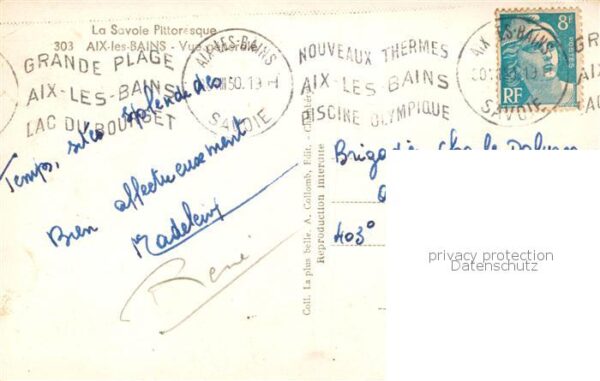 La Savoie Pittoresque
303 AIX-les-BAINS - Vue générale
GRANDE PLAGE
AIX-LES-BAINS
LAC DU BOURGET
AIX-LES-BAINS
SAVOIE
NOUVEAUX THERMES
AIX-LES-BAINS
PISCINE OLYMPIQUE
AIX-LES-BAINS
SAVOIE
8F
POSTES
RF
Temps, sites splendides
Bien affectueusement
Madeleine
René
Coll. La plus belle. A. Collomb, Edit. -
Reproduction interdite
Brigadier
403°
privacy protection
Datenschutz